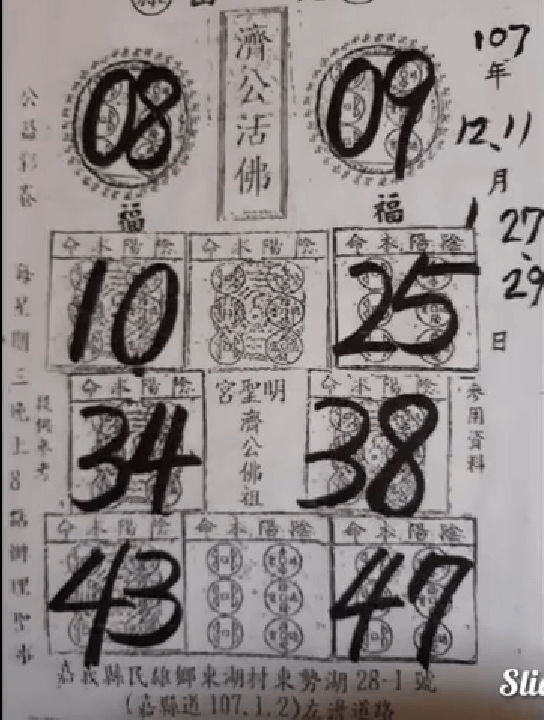 濟公活佛
08
09
107
年
12、11
月
27、
29
日
福
福
命本陽陰
命本陽陰
命本陽陰
10
25
命本陽陰
宮聖明
命本陽陰
34
濟公佛祖
38
命本陽陰
命本陽陰
命本陽陰
43
47
公益彩券
每星期三晚上8點辦理聖事
參用資料
嘉義縣民雄鄉東湖村東勢湖28-1號
(嘉縣道107.1.2)左邊道路